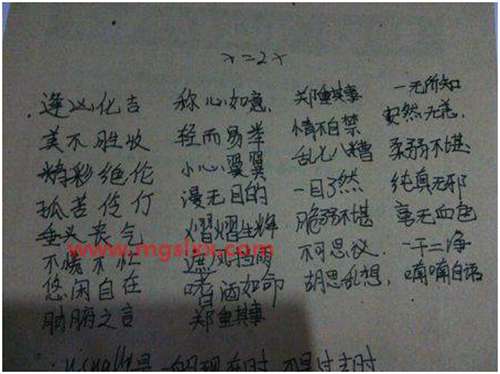 x=2x
逢凶化吉 称心如意, 郑重其事 一无所知
美不胜收 轻而易举 情不自禁 安然无恙,
精彩绝伦 小心翼翼 乱七八糟 柔弱不堪
孤苦伶仃 漫无目的 一目了然 纯真无邪
垂头丧气 熠熠生辉 脆弱不堪 毫无血色
www.mgslxx.com
不慌不忙 不可思议 一干二净
悠闲自在 嗜酒如命 胡思乱想, 喃喃自语
肺腑之言 郑重其事
usually是一般现在时,不是过去时